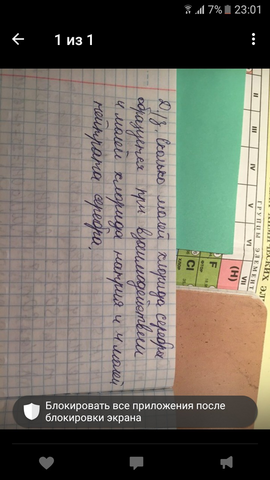 7% 23:01
1 из 1
Д/з. Сколько молей хлорида серебра
образуется при взаимодействии
4 молей хлорида натрия и 4 молей
нейтрата серебра.
ГРУППЫ ЭЛЕМЕНТ
II
III
IV
V
VI
VII
(H)
F
Cl
Блокировать все приложения после
блокировки экрана